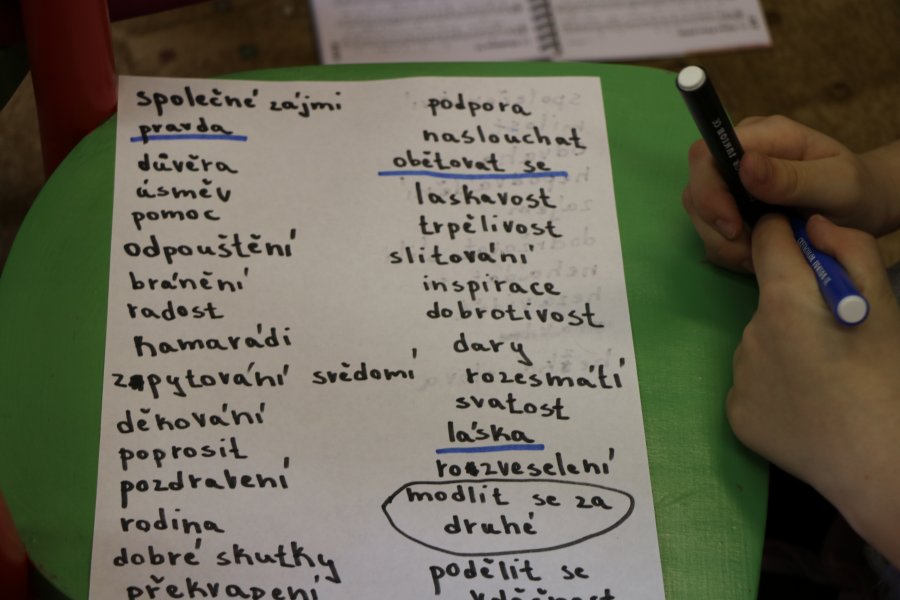 společné zájmi
pravda
důvěra
úsměv
pomoc
odpouštění
bránění
radost
kamarádi
zpytování svědomí
děkování
poprosit
pozdravení
rodina
dobré skutky
překvapení
podpora
naslouchat
obětovat se
laskavost
trpělivost
slitování
inspirace
dobrotivost
dary
rozesmátí
svatost
láska
rozveselení
modlit se za
druhé
podělit se
vděčnost